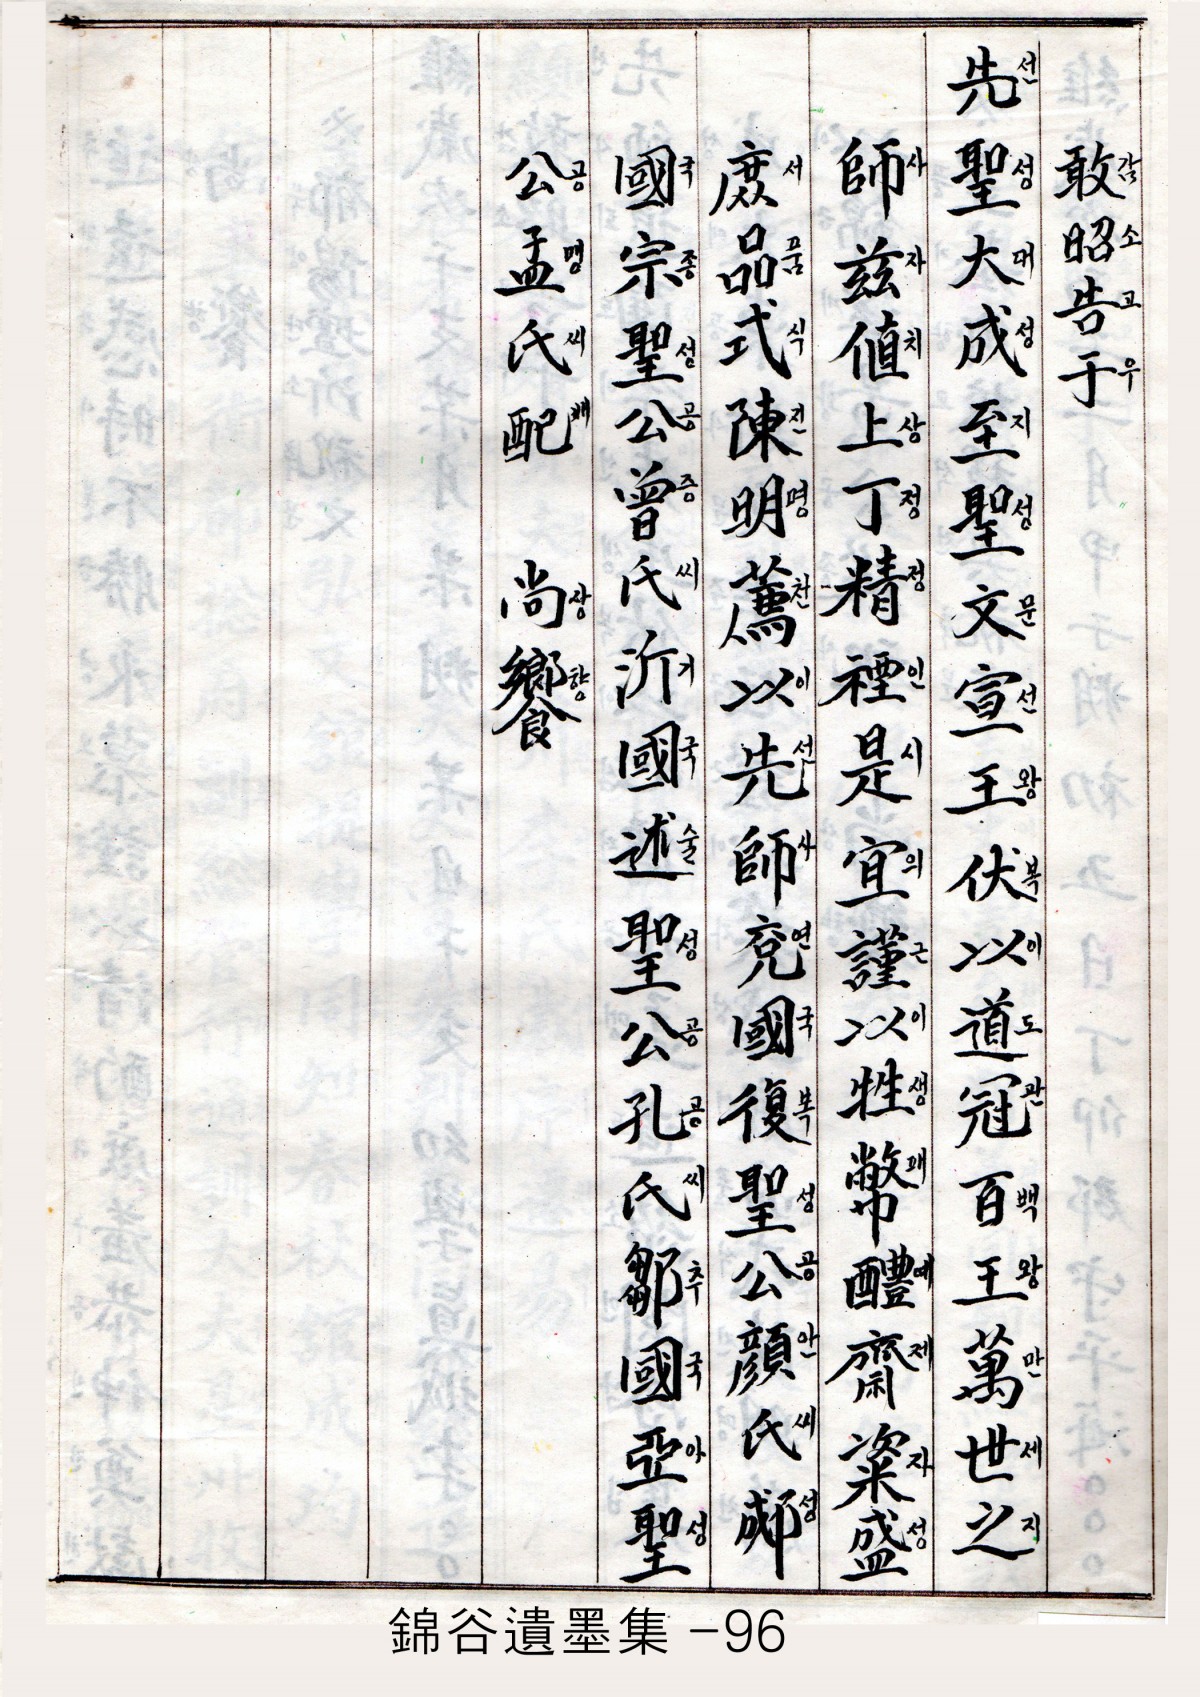 敢감昭소告고于우
先선聖성大대成성至지聖성文문宣선王왕伏복以이道도冠관百백王왕萬만世세之지
師사玆자値치上상丁정精정禋인是시宜의謹근以이牲생幣패醴예齋제粢자盛성
庶서品품式식陳진明명薦천以이先선師사兗연國국復복聖성公공顔안氏씨郕성
國국宗종聖성公공曾증氏씨沂기國국述술聖성公공孔공氏씨鄒추國국亞아聖성
公공孟맹氏씨配배 尙상饗향
錦谷遺墨集 -96